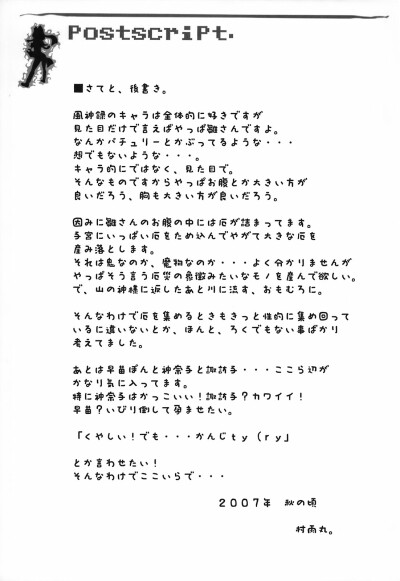 Postscript.
■さてと、後書き。
風神録のキャラは全体的に好きですが
見た目だけで言えばやっぱ雛さんですよ。
なんかパチュリーとかぶってるような・・・
想でもないような・・・。
キャラ的にではなく、見た目で。
そんなものですからやっぱお腹とか大きい方が
良いだろう、胸も大きい方が良いだろう。
因みに雛さんのお腹の中には厄が詰まってます。
子宮にいっぱい厄をため込んでやがて大きな厄を
産み落とします。
それは鬼なのか、魔物なのか・・・よく分かりませんが
やっぱそう言う厄災の象徴みたいなモノを産んで欲しい。
で、山の神様に返したあと川に流す、おもむろに。
そんなわけで厄を集めるときもきっと性的に集め回って
いるに違いないとか、ほんと、ろくでもない事ばかり
考えてました。
あとは早苗ぽんと神奈子と諏訪子・・・ここら辺が
かなり気に入ってます。
特に神奈子はかっこいい！諏訪子？カワイイ！
早苗？いびり倒して孕ませたい。
「くやしい！でも・・・かんじty（ry」
とか言わせたい！
そんなわけでここいらで・・・
２００７年　秋の頃
村雨丸。